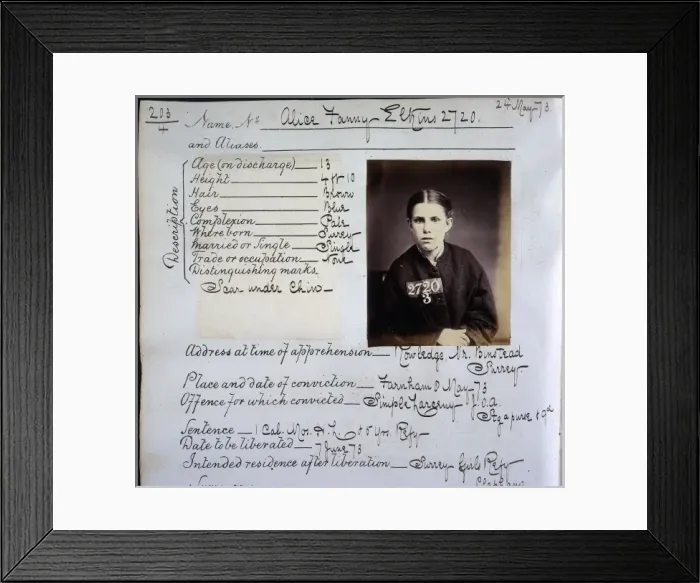 203
4
24 May 73
Name, No. Alice Fanny Elkins 2720.
and Aliases.
Description
Age (on discharge) 13
Height 4 ft 10
Hair Brown
Eyes Blue
Complexion Pale
Where born Surrey
Married or Single Single
Trade or occupation None
Distinguishing marks
Scar under Chin
2720
3
Address at time of apprehension Rowledge Nr. Binstead
Surrey
Place and date of conviction Farnham May 73
Offence for which convicted Simple Larceny J.O.A.
Stg a purse & 9d
Sentence 1 Cal. Mo. H.L. & 5 Yrs. Refy
Date to be liberated 7 June 73
Intended residence after liberation Surrey Girls Refy